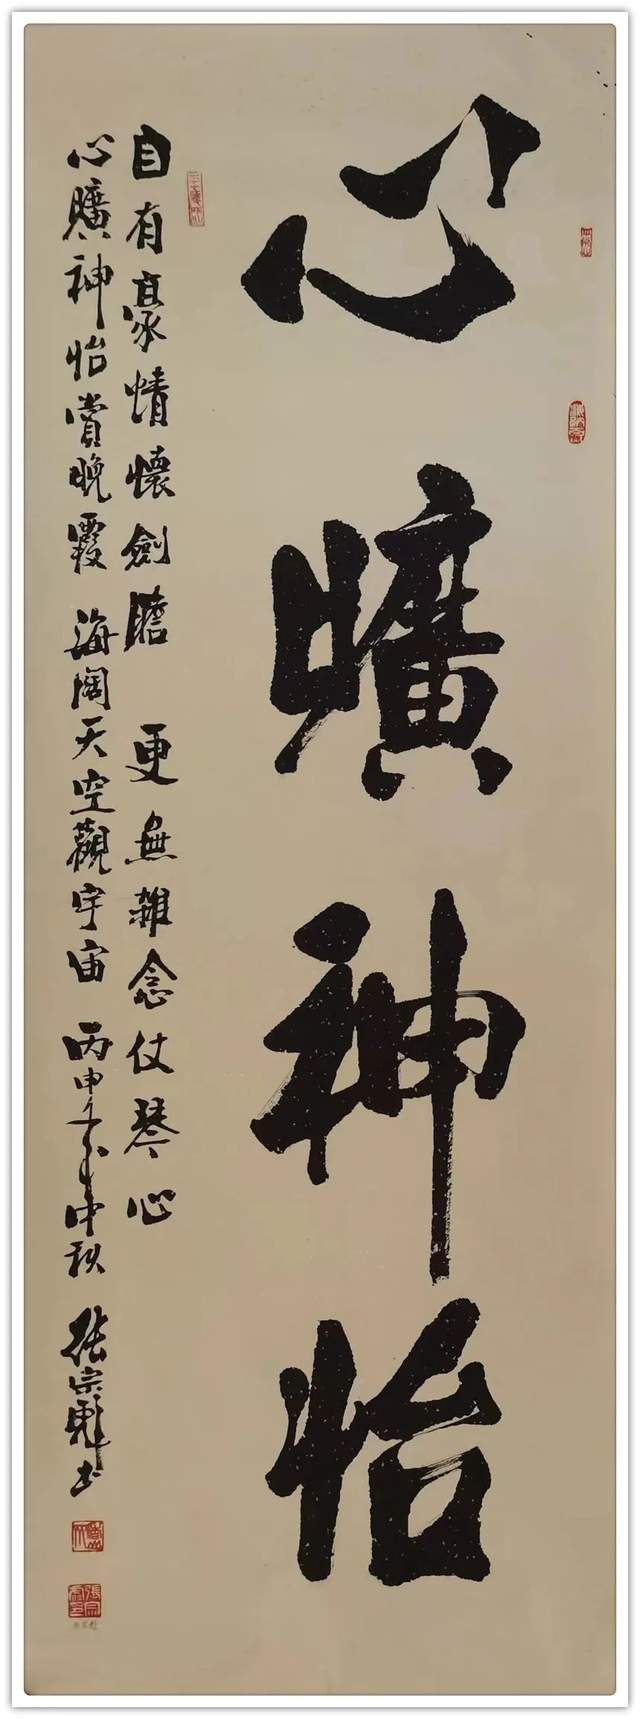 心曠神怡
自有豪情懷劍膽 更無雜念仗琴心
心曠神怡賞晚霞 海闊天空觀宇宙 丙申年中秋 張宗彪書